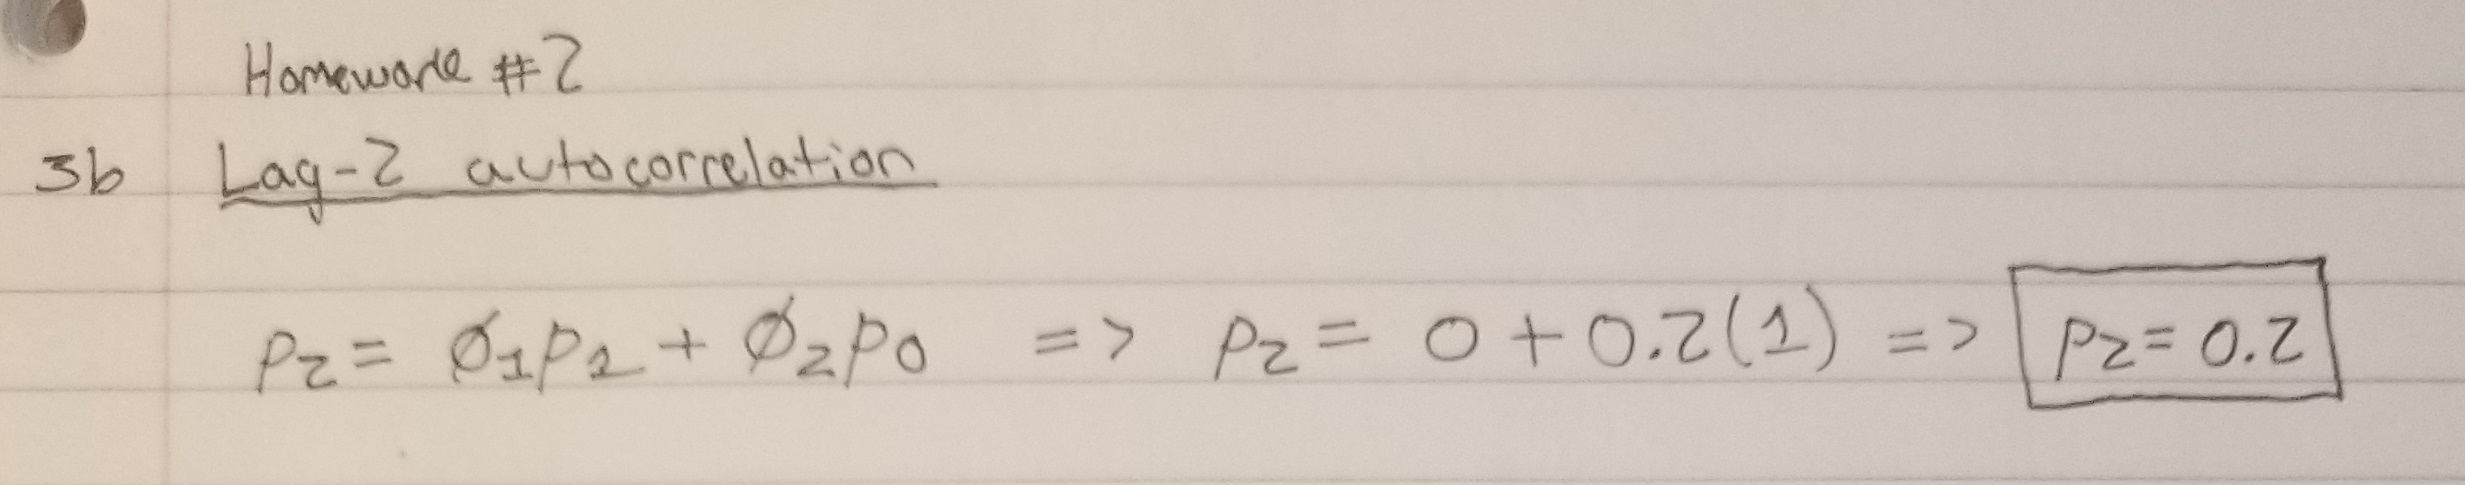 Homework #2
3b Lag-2 autocorrelation
p₂ = Ø₁p₁ + Ø₂p₀ => p₂ = 0 + 0.2(1) => p₂ = 0.2